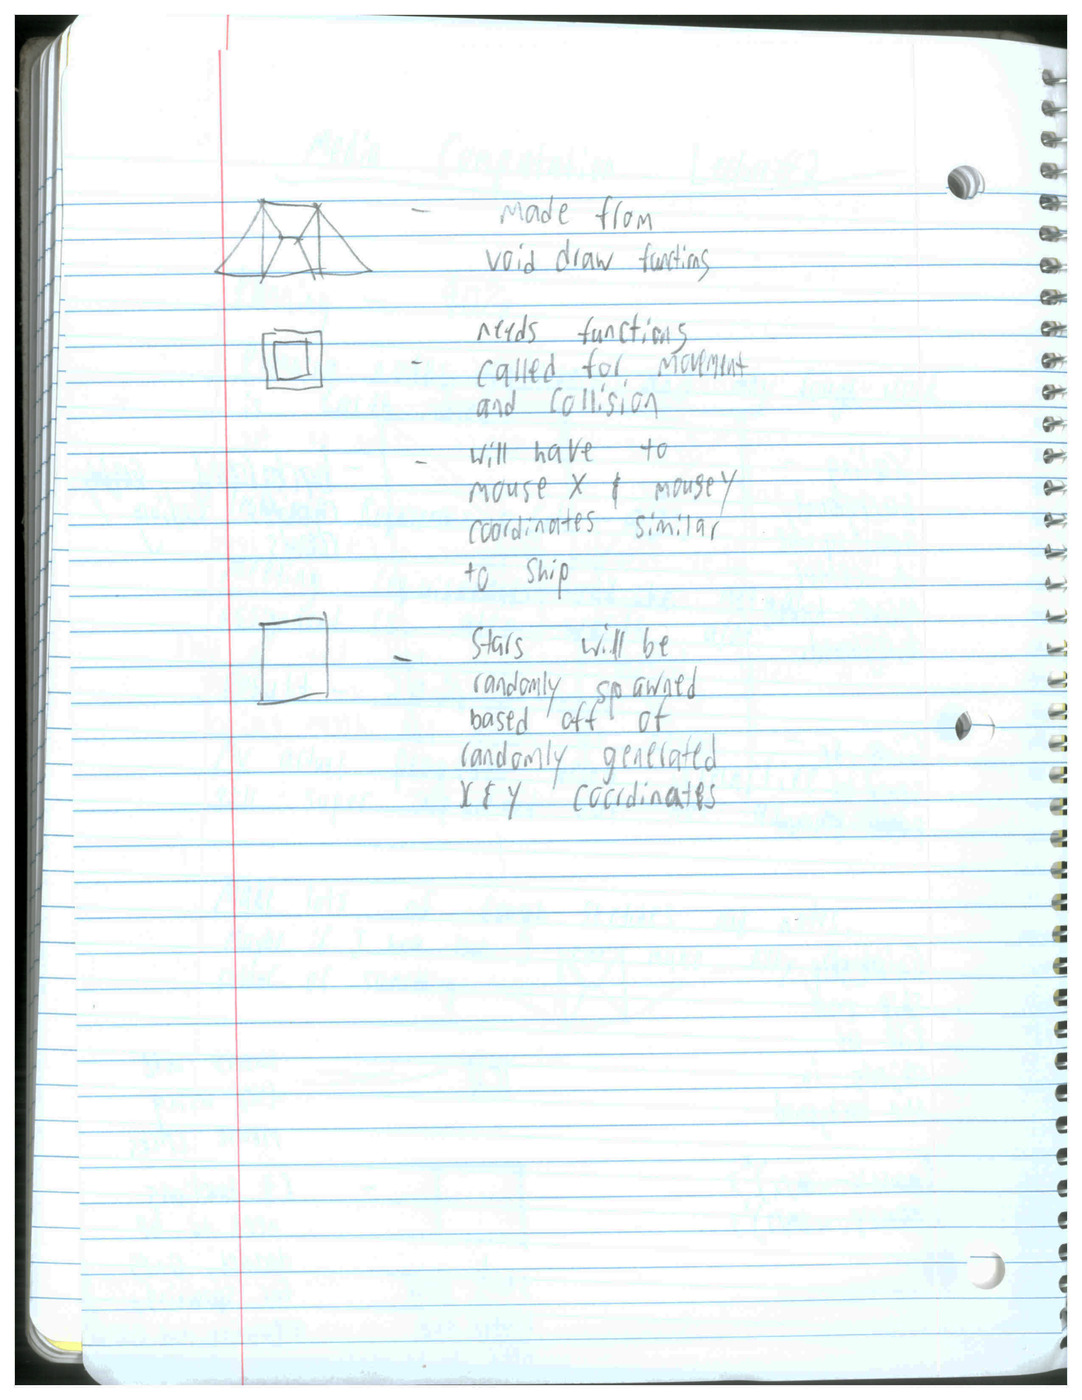 - Made from
void draw functions
needs functions
- called for movement
and collision
- will have to
mouse X & mouse Y
coordinates similar
to ship
- Stars will be
randomly spawned
based off of
randomly generated
X & Y coordinates
Media Computation